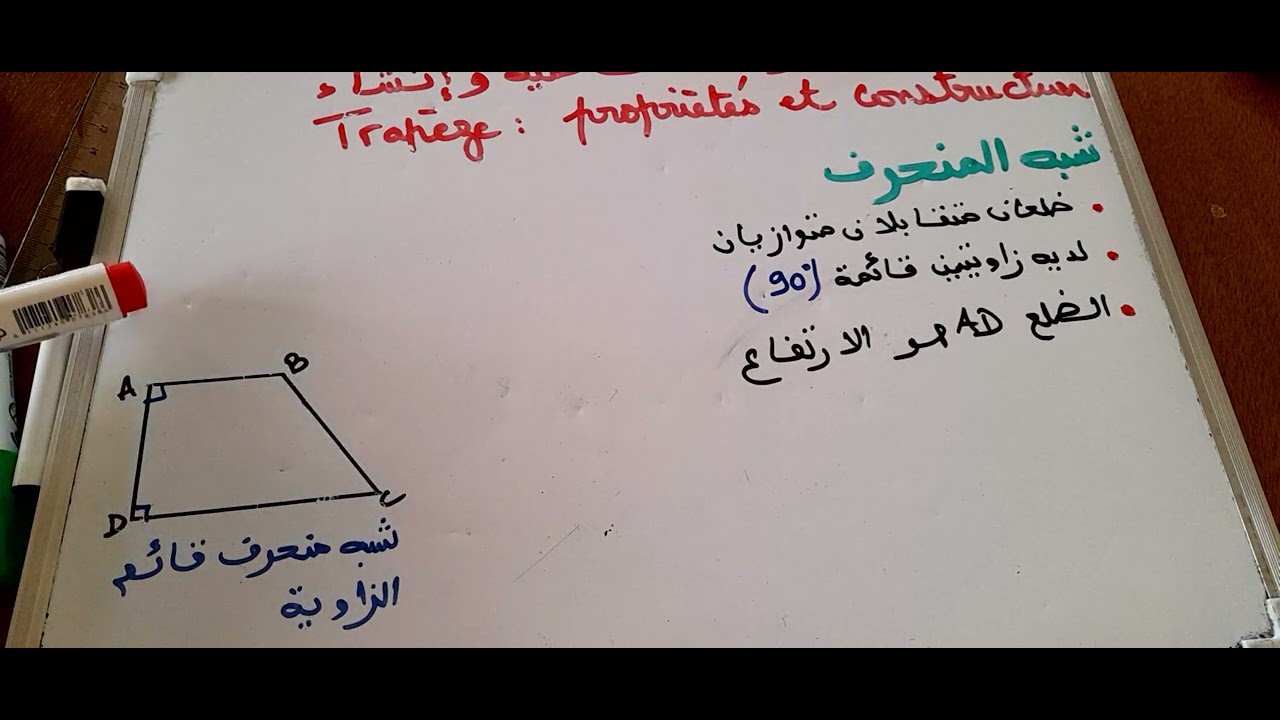 وإنشاء
Trapèze : propriétés et construction
شبه المنحرف
• ضلعان متقابلان متوازيان
• لديه زاويتين قائمة (90°)
• الضلع AD هو الارتفاع
A
B
C
D
شبه منحرف قائم
الزاوية